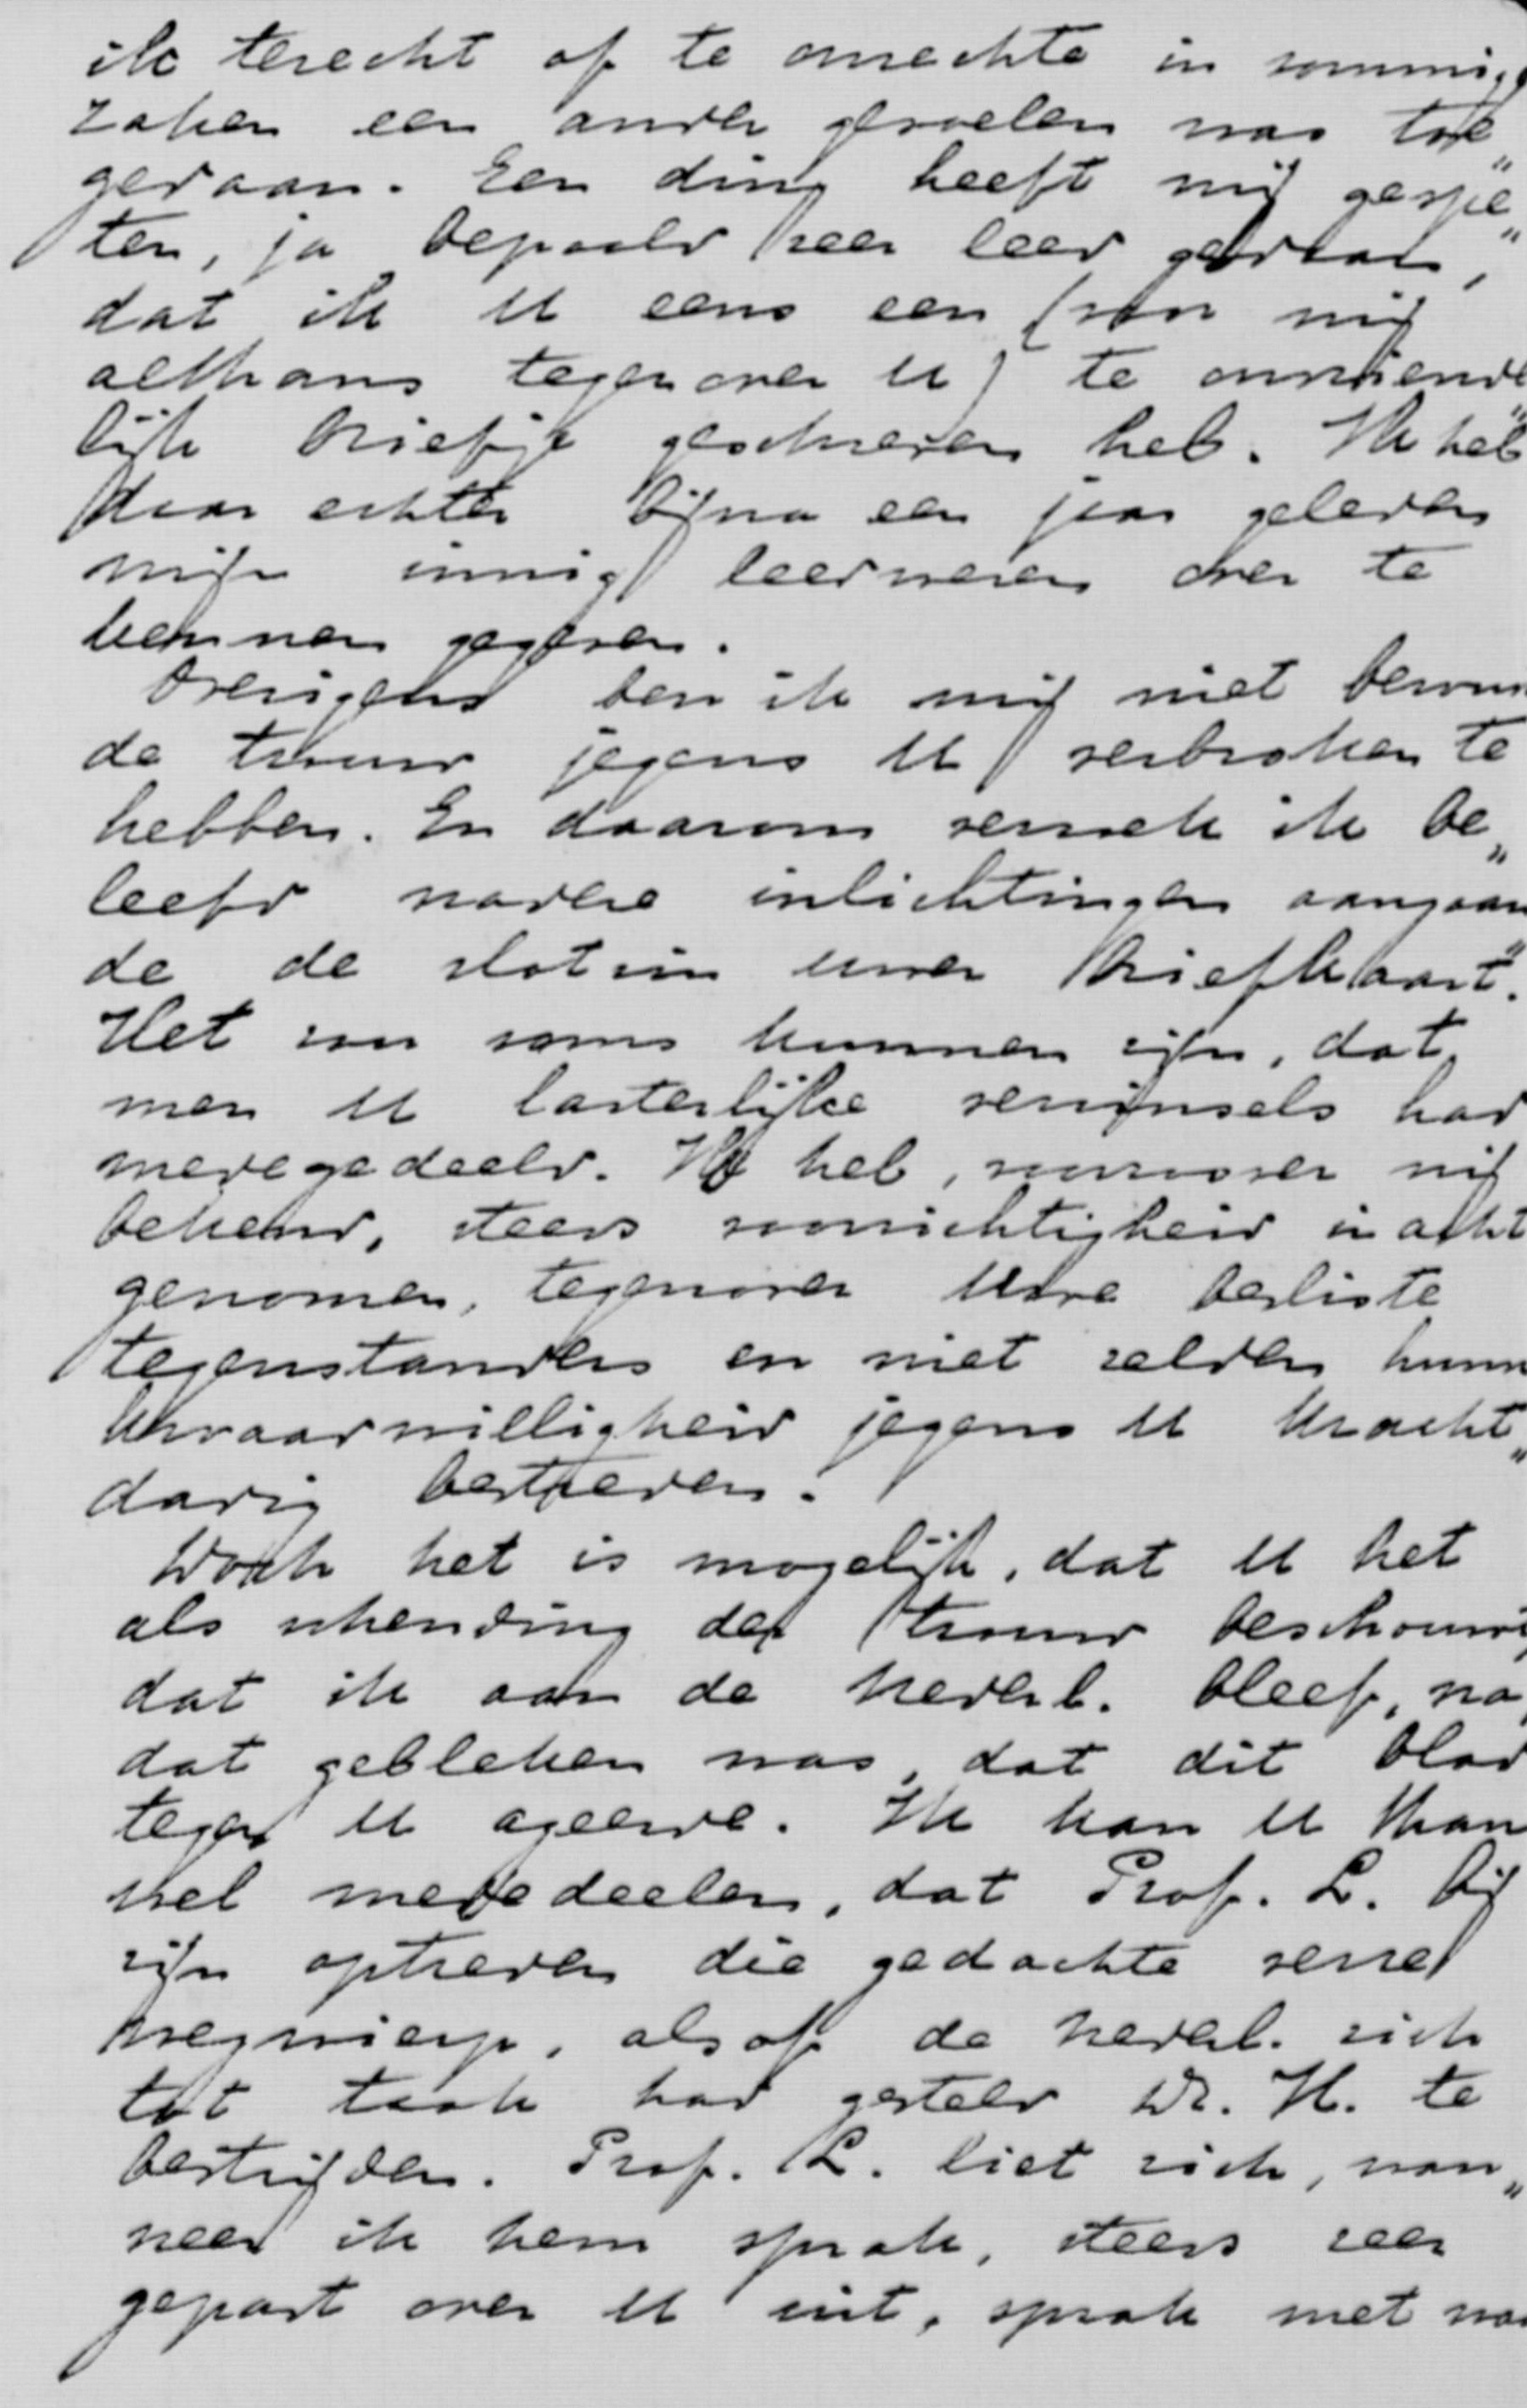 ik terecht of te onrechte in sommige
zaken een ander gevoelen was toe„
gedaan. Een ding heeft mij gespe„
ten, ja bepaald zeer leed gedaan,
dat ik U eens een (van mij
althans tegenover U) te onvriende„
lijk briefje geschreven heb. Ik heb
daar echter bijna een jaar geleden
mijn innig leedwezen over te
kennen gegeven.
Overigens ben ik mij niet bewust
de trouw jegens U verbroken te
hebben. En daarom verzoek ik be„
leefd nadere inlichtingen aangaan„
de de slotzin uwer briefkaart.
Het zou soms kunnen zijn, dat
men U lasterlijke verzinsels had
medegedeeld. Ik heb, voorzoover mij
bekend, steeds voorzichtigheid in acht
genomen, tegenover Uwe besliste
tegenstanders en niet zelden hunne
kwaadwilligheid jegens U kracht„
dadig bestreden.
Doch het is mogelijk, dat U het
als schending der trouw beschouwt
dat ik aan de Nederl. bleef, na„
dat gebleken was, dat dit blad
tegen U ageerde. Ik kan U than
wel mededeelen, dat Prof. L. bij
zijn optreden die gedachte verre
wegwierp, alsof de Nederl. zich
tot taak had gesteld Dr. K. te
bestrijden. Prof. L. liet zich, wan„
neer ik hem sprak, steeds zeer
gepast over U uit, sprak met